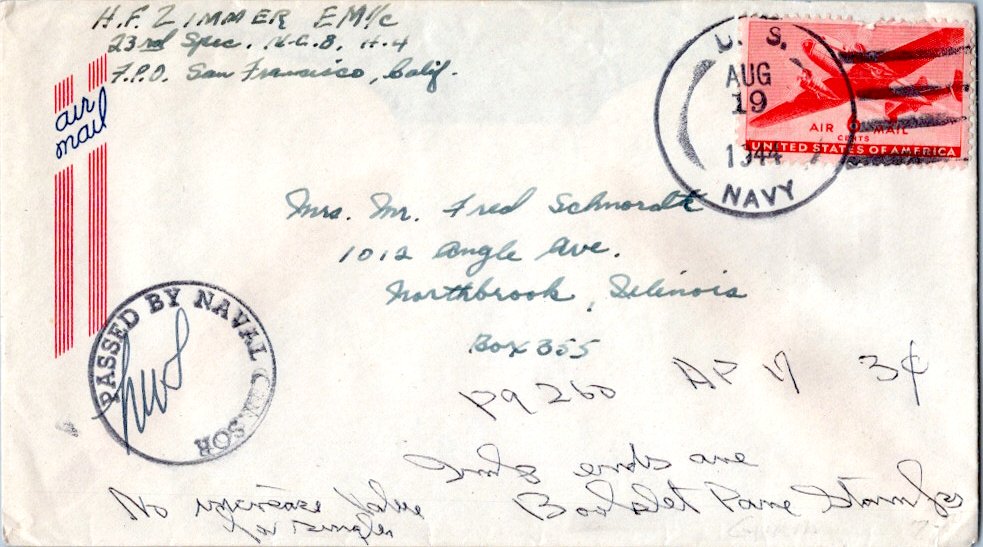 H. F. ZIMMER EM1/c
23rd Spec. N.C.B. H-4
F.P.O. San Francisco, Calif.
air
mail
U. S.
AUG
19
1944
NAVY
AIR 6 MAIL
CENTS
UNITED STATES OF AMERICA
Mrs. Mr. Fred Schnordt
1012 Angle Ave.
Northbrook, Illinois
Box 355
PASSED BY NAVAL CENSOR
Pg 260 AP 17 3¢
ends are
No increase Value Booklet Pane Stamps
for singles